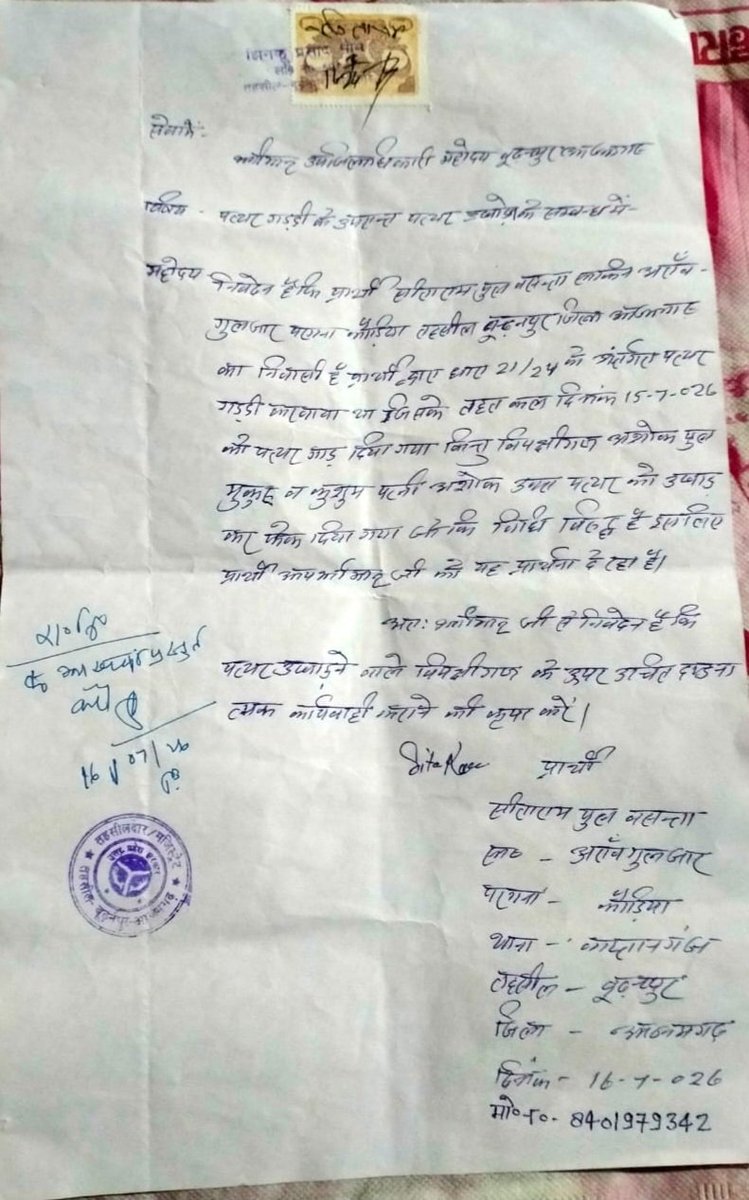 झिनकू प्रसाद
तहसील-बूढ़नपुर
सेवामें:
श्रीमान् उपजिलाधिकारी महोदय बूढ़नपुर आजमगढ़
विषय - पत्थर गड्डी के उपरान्त पत्थर उखाड़ने के सम्बन्ध में-
महोदय निवेदन है कि प्रार्थी सीताराम पुत्र बसन्ता साकिन अराँव-
गुलजार परगना कौड़िया तहसील बूढ़नपुर जिला आजमगढ़
का निवासी है प्रार्थी द्वारा धारा 21/24 के अंतर्गत पत्थर
गड्डी करवाया था जिसके तहत कल दिनांक 15-7-026
को पत्थर गाड़ दिया गया किन्तु विपक्षीगण अशोक पुत्र
व कुशुम पत्नी अशोक उक्त पत्थर को उखाड़
कर फेंक दिया गया जो कि विधि विरुद्ध है इसलिए
प्रार्थी आप श्रीमान् जी को यह प्रार्थना दे रहा है।
अतः श्रीमान् जी से निवेदन है कि
पत्थर उखाड़ने वाले विपक्षीगण के उपर उचित दण्डना
त्मक कार्यवाही कराने की कृपा करें।
प्रार्थी
सीताराम पुत्र बसन्ता
अराँव गुलजार
परगना - कौड़िया
थाना - कप्तानगंज
तहसील - बूढ़नपुर
जिला - आजमगढ़
दिनांक - 16-7-026
मो०न०- 8401979342
रा०नि०
आख्या प्रस्तुत
करें
तहसीलदार/मजिस्ट्रेट
उत्तर प्रदेश सरकार
तहसील-बूढ़नपुर-आजमगढ़